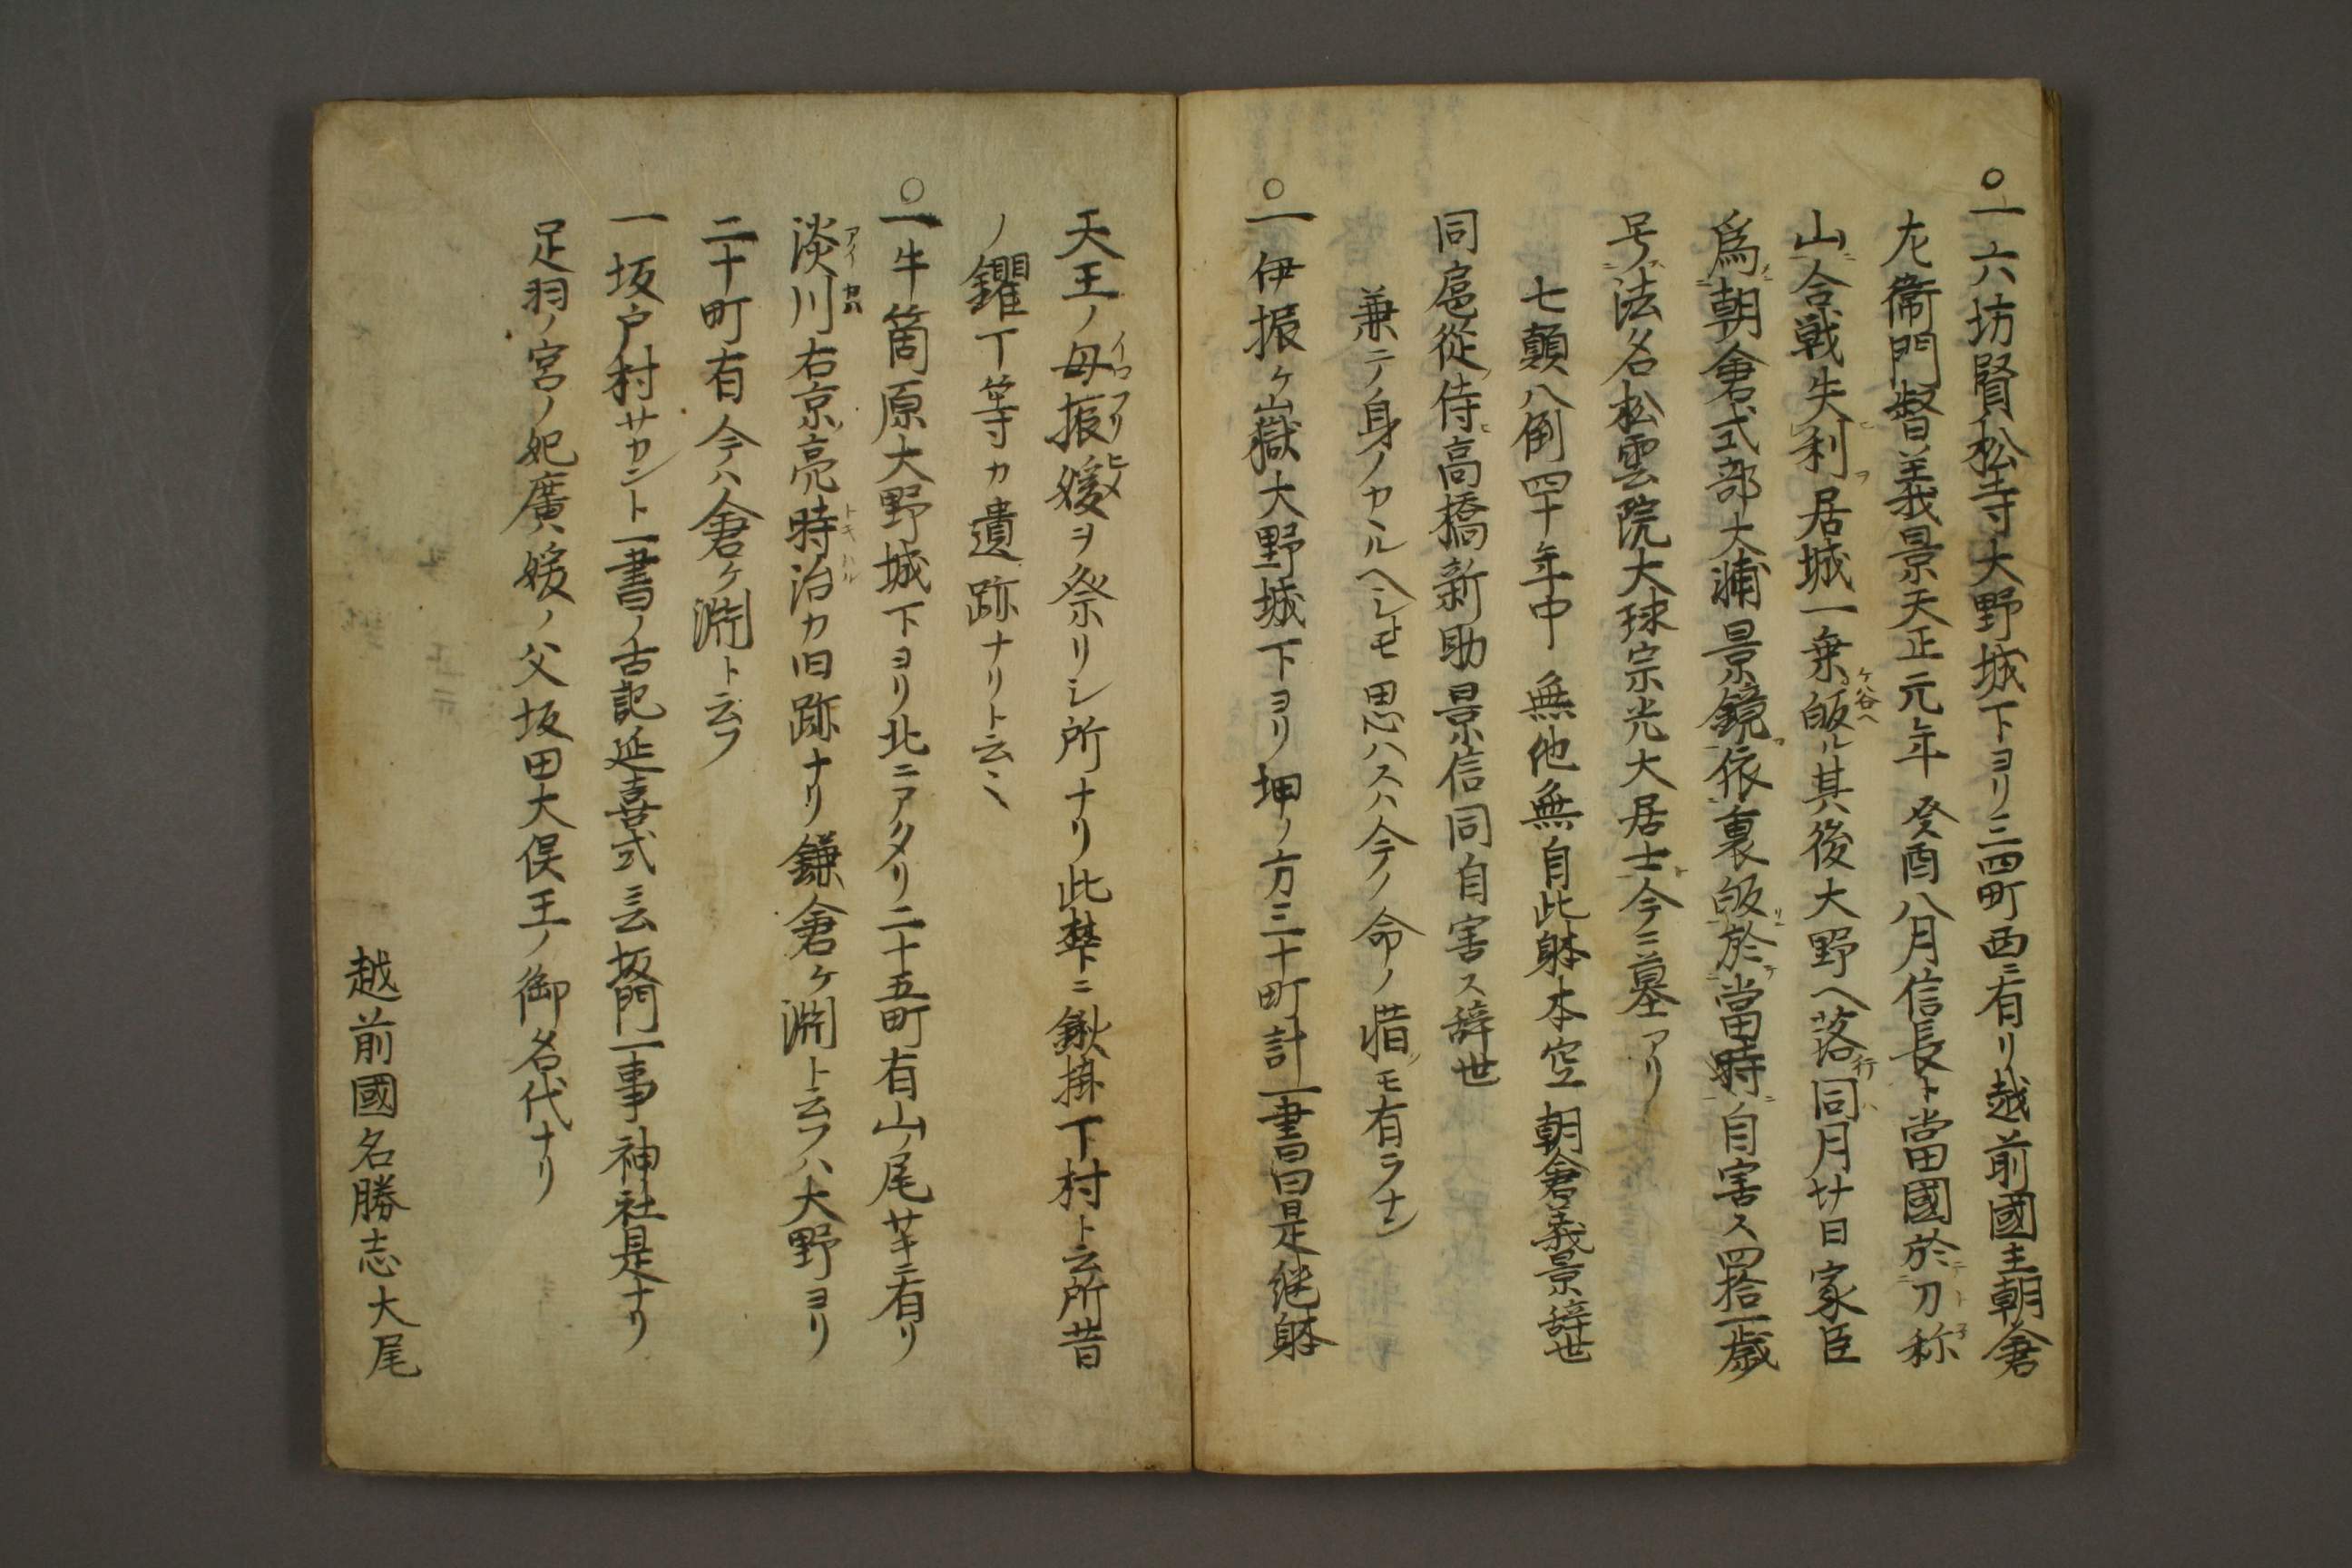 ○一六坊賢松寺大野城下ヨリ三四町西ニ有リ越前國主朝倉
左衛門督義景天正元年癸酉八月信長ト當國於刀祢
山合戦失利居城一乗ケ谷ヘ皈ル其後大野ヘ落行同月廿日家臣
爲朝倉式部大浦景鏡依裏皈於當時自害ス四拾一歳
号法名松雲院大球宗光大居士今ニ墓アリ
七顛八倒四十年中無他無自此躰本空朝倉義景辞世
同扈従侍高橋新助景信同自害ス辞世
兼テノ身ノカルヘシモ思ハスハ今ノ命ノ惜モ有ラナン
○一伊振ケ嶽大野城下ヨリ坤ノ方三十町計一書曰是継躰
天王ノ母振媛ヲ祭リシ所ナリ此梺ニ鍬掛下村ト云所昔
ノ钁丁等カ遺跡ナリト云ミ
○一牛箇原大野城下ヨリ北ニアタリ二十五町有山ノ尾サキニ有リ
淡川右京亮時治カ旧跡ナリ鎌倉ケ淵ト云フハ大野ヨリ
二十町有今ハ倉ケ淵ト云フ
一坂戸村サカント一書ノ古記延喜式ニ云坂門一事神社是ナリ
足羽ノ宮ノ妃廣媛ノ父坂田大俣王ノ御名代ナリ
越前國名勝志大尾